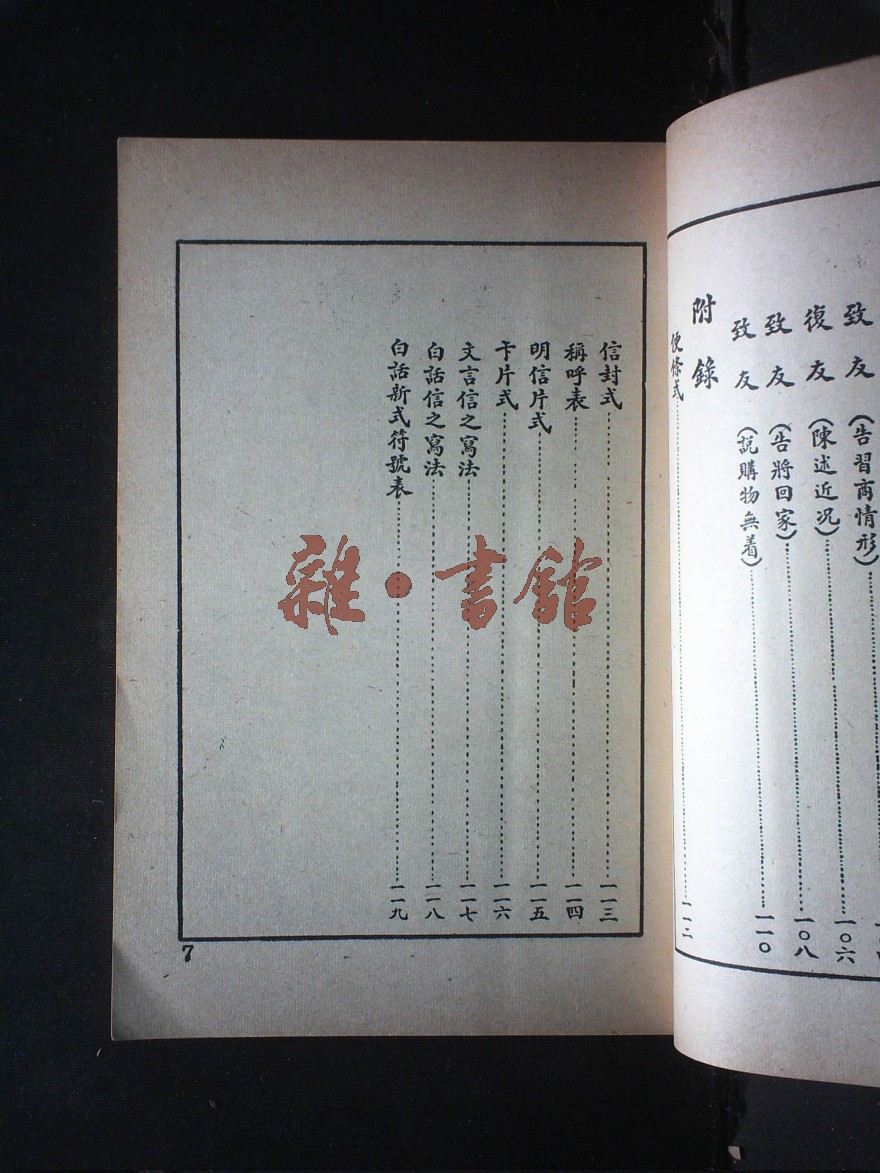 致友（告習商情形）
復友（陳述近况）……一〇六
致友（告將回家）……一〇八
致友（說購物無着）……一一〇
附錄
便條式……一一二
信封式……一一三
稱呼表……一一四
明信片式……一一五
卡片式……一一六
文言信之寫法……一一七
白話信之寫法……一一八
白話新式符號表……一一九
7
雜·書館